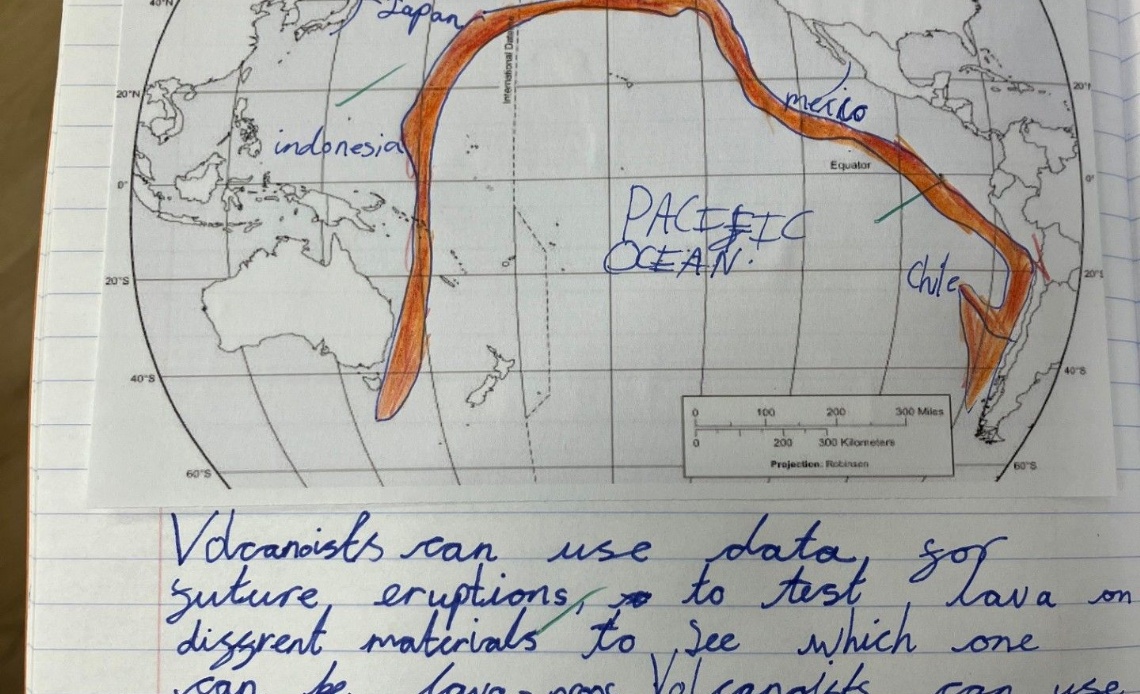 40°N
Japan
International Date
20°N
20°
mexico
indonesia
Equator
0°
PACIFIC
OCEAN.
Chile
20°S
20°S
40°S
40°S
0 100 200 300 Miles
0 200 300 Kilometers
Projection: Robinson
60°S
60°S
Volcanoists can use data, for
future, eruptions, to test lava on
diffrent materials to see which one
can be lava-proof Volcanoists can use